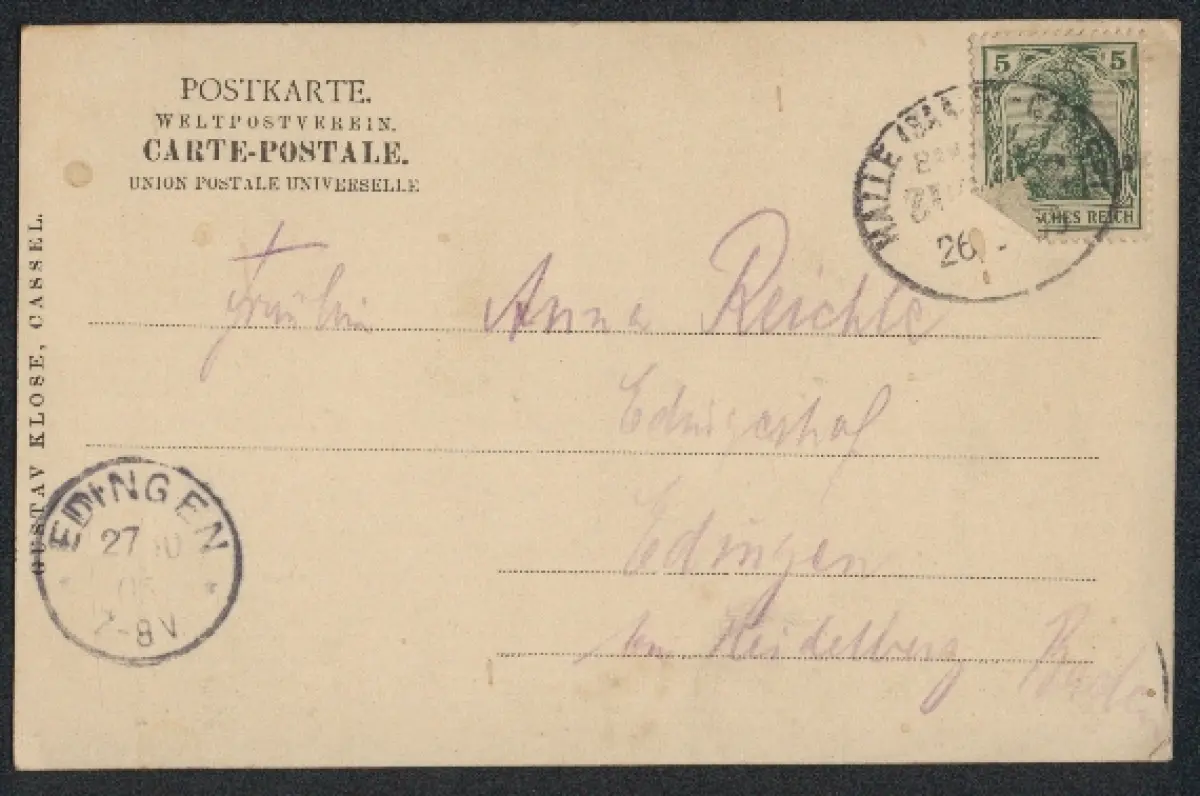 POSTKARTE.
WELTPOSTVEREIN.
CARTE-POSTALE.
UNION POSTALE UNIVERSELLE
5 5
SCHES REICH
HALLE (SAA
26
Fräulein Anna Reichle
Edingen
bei Heidelberg Baden
GUSTAV KLOSE, CASSEL.
EDINGEN
27 10
05
7-8 V.